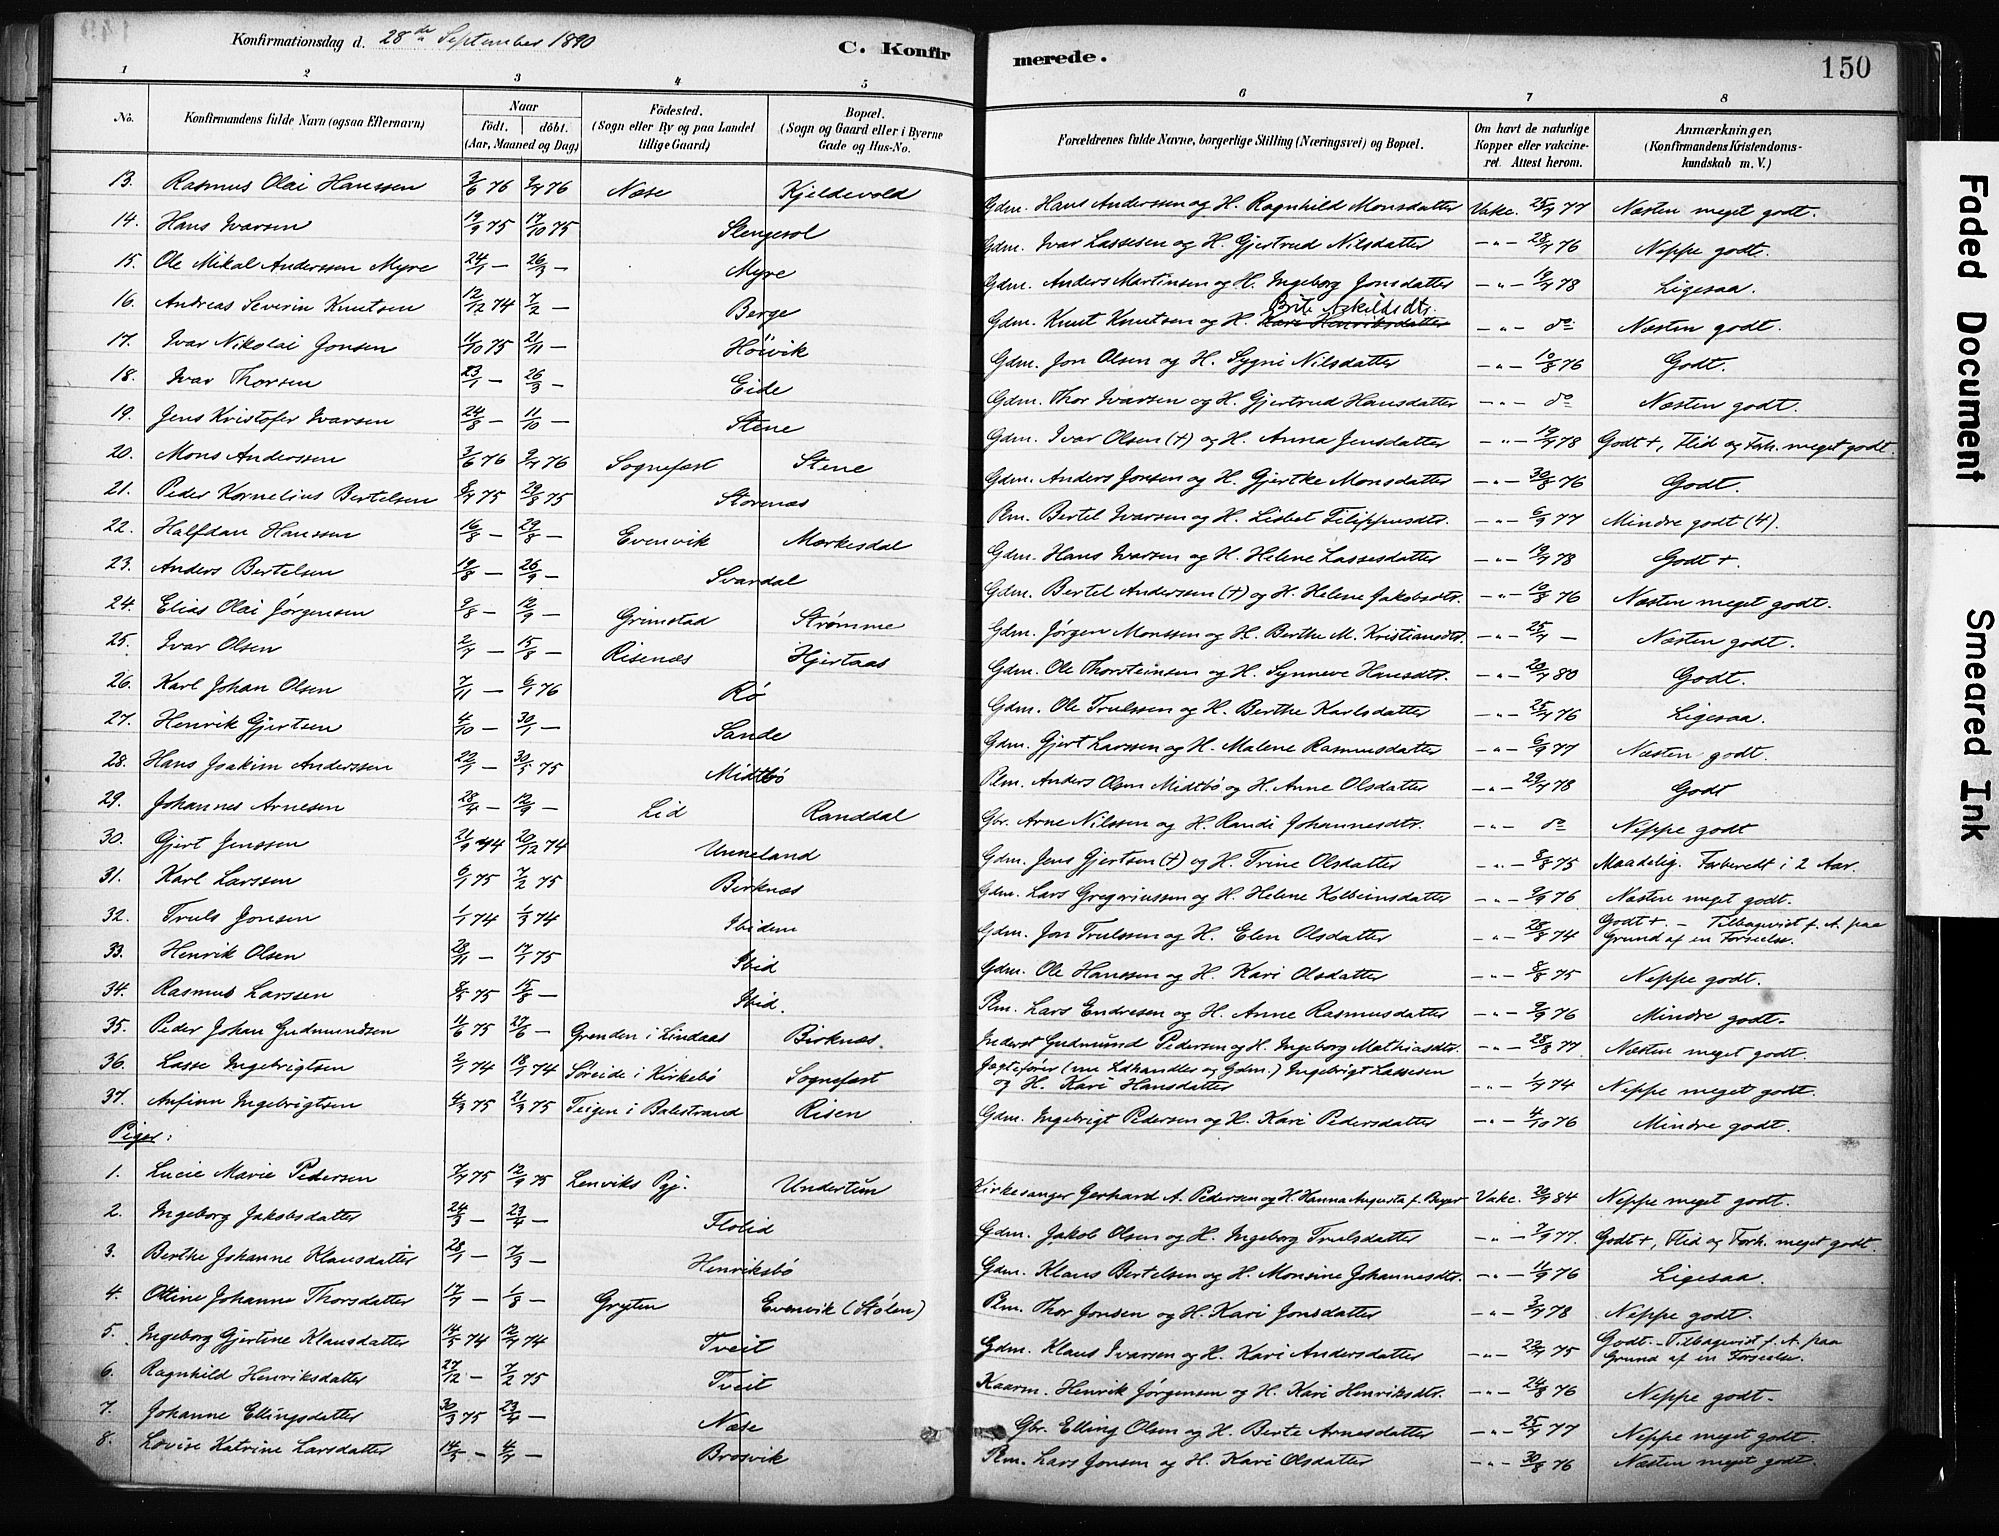 Konfirmationsdag d. 28de September 1890
C. Konfirmerede.
150
1 2 3 4 5 6 7 8
No. Konfirmandens fulde Navn (ogsaa Efternavn) Naar födt. döbt. (Aar, Maaned og Dag) Födested. (Sogn eller By og paa Landet tillige Gaard) Bopæl. (Sogn og Gaard eller i Byerne Gade og Hus-No. Forældrenes fulde Navne, borgerlige Stilling (Næringsvei) og Bopæl. Om havt de naturlige Kopper eller vakcineret. Attest herom. Anmærkninger, (Konfirmandens Kristendomskundskab m. V.)
13. Rasmus Olai Hanssen 3/6 76 9/7 76 Næse Kjeldevold Gdm. Hans Anderssen og H. Ragnhild Monsdatter Vakc. 25/7 77 Næsten meget godt.
14. Hans Ivarsen 19/9 75 17/10 75 Stengesol Gdm. Ivar Lassesen og H. Gjertrud Nilsdatter -"- 28/7 76 Neppe godt.
15. Ole Mikal Anderssen Myre 24/1 — 26/3 — Myre Gdm. Anders Martinsen og H. Ingeborg Jonsdatter -"- 19/7 78 Ligesaa.
16. Andreas Severin Knutsen 12/12 74 7/2 — Berge Gdm. Knut Knutsen og H. Kari Henriksdatter Brite Askildsdtr. -"- do Næsten godt.
17. Ivar Nikolai Jonsen 11/10 75 21/11 — Höivik Gdm. Jon Olsen og H. Sygni Nilsdatter -"- 10/8 76 Godt.
18. Ivar Thorsen 23/1 — 26/3 — Eide Gdm. Thor Ivarsen og H. Gjertrud Hansdatter -"- do Næsten godt.
19. Jens Kristofer Ivarsen 24/8 — 11/10 — Stene Gdm. Ivar Olsen (+) og H. Anna Jensdatter -"- 19/7 78 Godt +, Flid og Forh. meget godt.
20. Mons Anderssen 3/6 76 9/7 76 Sognefæst Stene Gdm. Anders Jonsen og H. Gjertke Monsdatter -"- 30/8 76 Godt.
21. Peder Kornelius Bertelsen 8/7 75 29/8 75 Storenæs Plm. Bertel Ivarsen og H. Lisbet Filippusdtr. -"- 6/9 77 Mindre godt (4).
22. Halfdan Hanssen 16/8 — 29/8 — Evenvik Mørkesdal Gdm. Hans Ivarsen og H. Helene Lassesdatter -"- 19/7 78 Godt +.
23. Anders Bertelsen 19/8 — 26/9 — Svardal Gdm. Bertel Anderssen (+) og H. Helene Jakobsdtr. -"- 10/8 76 Næsten meget godt.
24. Elias Olai Jørgensen 9/8 — 12/9 — Grimstad Strømme Gdm. Jørgen Monssen og H. Berthe M. Kristiansdtr. -"- 25/7 — Næsten godt.
25. Ivar Olsen 2/7 — 15/8 — Risenæs Hjertaas Gdm. Ole Thorsteinsen og H. Synneve Hansdtr. -"- 20/7 80 Godt.
26. Karl Johan Olsen 7/11 — 6/1 76 Rø Gdm. Ole Trulssen og H. Berthe Karlsdatter -"- 25/7 76 Ligesaa.
27. Henrik Gjertsen 4/10 — 30/1 — Sande Gdm. Gjert Larssen og H. Malene Rasmusdatter -"- 6/9 77 Næsten godt.
28. Hans Joakim Anderssen 20/1 — 30/5 75 Midtbö Plm. Anders Olsen Midtbö og H. Anne Olsdatter -"- 29/7 78 Godt
29. Johannes Arnesen 28/4 — 12/9 — Lid Randdal Gbr. Arne Nilssen og H. Randi Johannesdtr. -"- do Neppe godt
30. Gjert Jenssen 21/9 74 20/12 74 Unneland Gdm. Jens Gjertsen (+) og H. Trine Olsdatter -"- 8/8 75 Maadelig. Forberedt i 2 Aar.
31. Karl Larssen 6/1 75 7/2 75 Birknæs Gdm. Lars Gregoriussen og H. Helene Kolbeinsdatter -"- 9/9 76 Næsten meget godt.
32. Truls Jonsen 1/1 74 1/3 74 Ibidem Gdm. Jon Trulssen og H. Elen Olsdatter -"- 28/8 74 Godt +. — Tilbagevist f. A. paa Grund af en Forseelse.
33. Henrik Olsen 28/11 — 17/1 75 Ibid Gdm. Ole Hanssen og H. Kari Olsdatter -"- 8/8 75 Neppe godt.
34. Rasmus Larssen 8/5 75 15/8 — Ibid. Plm. Lars Endresen og H. Anne Rasmusdatter -"- 9/9 76 Mindre godt.
35. Peder Johan Gudmundsen 11/6 75 27/6 — Grenden i Lindaas Birknæs. Inderst Gudmund Pedersen og H. Ingeborg Mathiasdtr. -"- 28/8 77 Næsten meget godt.
36. Lasse Ingebrigtsen 2/1 74 18/1 74 Søreide i Kirkebö Sognefæst Jagtefører (nu Ldhandler og Gdm.) Ingebrigt Lassesen og H. Kari Hansdatter -"- 1/7 74 Neppe meget godt.
37. Anfinn Ingebrigtsen 4/3 75 21/3 75 Teigen i Balestrand Risen Gdm. Ingebrigt Pedersen og H. Kari Pedersdatter -"- 4/10 76 Mindre godt.
Piger:
1. Lucie Marie Pedersen 7/7 75 12/9 75 Lenviks Pgj. Undertun Kirkesanger Gerhard A. Pedersen og H. Hanna Augusta f. Beyer Vakc. 20/9 84 Neppe meget godt.
2. Ingeborg Jakobsdatter 24/3 — 23/4 — Flolid Gdm. Jakob Olsen og H. Ingeborg Trulsdatter " - 7/9 77. Godt +, Flid og Forh. meget godt.
3. Berthe Johanne Klausdatter 28/1 — 7/3 — Henriksbö Gdm. Klaus Bertelsen og H. Monsine Johannesdtr. -"- 11/9 76 Ligesaa.
4. Ottine Johanne Thorsdatter 17/7 — 1/8 — Gryten Evenvik (Stølen) Plm. Thor Jonsen og H. Kari Jonsdatter -"- 3/7 78 Neppe godt.
5. Ingeborg Gjertine Klausdatter 14/5 74 12/7 74 Tveit Gdm. Klaus Ivarsen og H. Kari Andersdatter -"- 22/7 75 Godt. - Tilbagevist f. A. paa Grund af en Forseelse.
6. Ragnhild Henriksdatter 27/12 — 7/2 75 Tveit Kaarm. Henrik Jørgensen og H. Kari Henriksdtr. -"- 24/8 76 Neppe godt.
7. Johanne Ellingsdatter 30/3 75 23/4 — Næse Gbr. Elling Olsen og H. Berte Arnesdatter -"- 25/7 77 Neppe meget godt.
8. Lovise Katrine Larsdatter 14/5 — 4/7 — Brosvik Plm. Lars Jonsen og H. Kari Olsdatter -"- 30/8 76 Næsten meget godt.
Faded Document
Smeared Ink